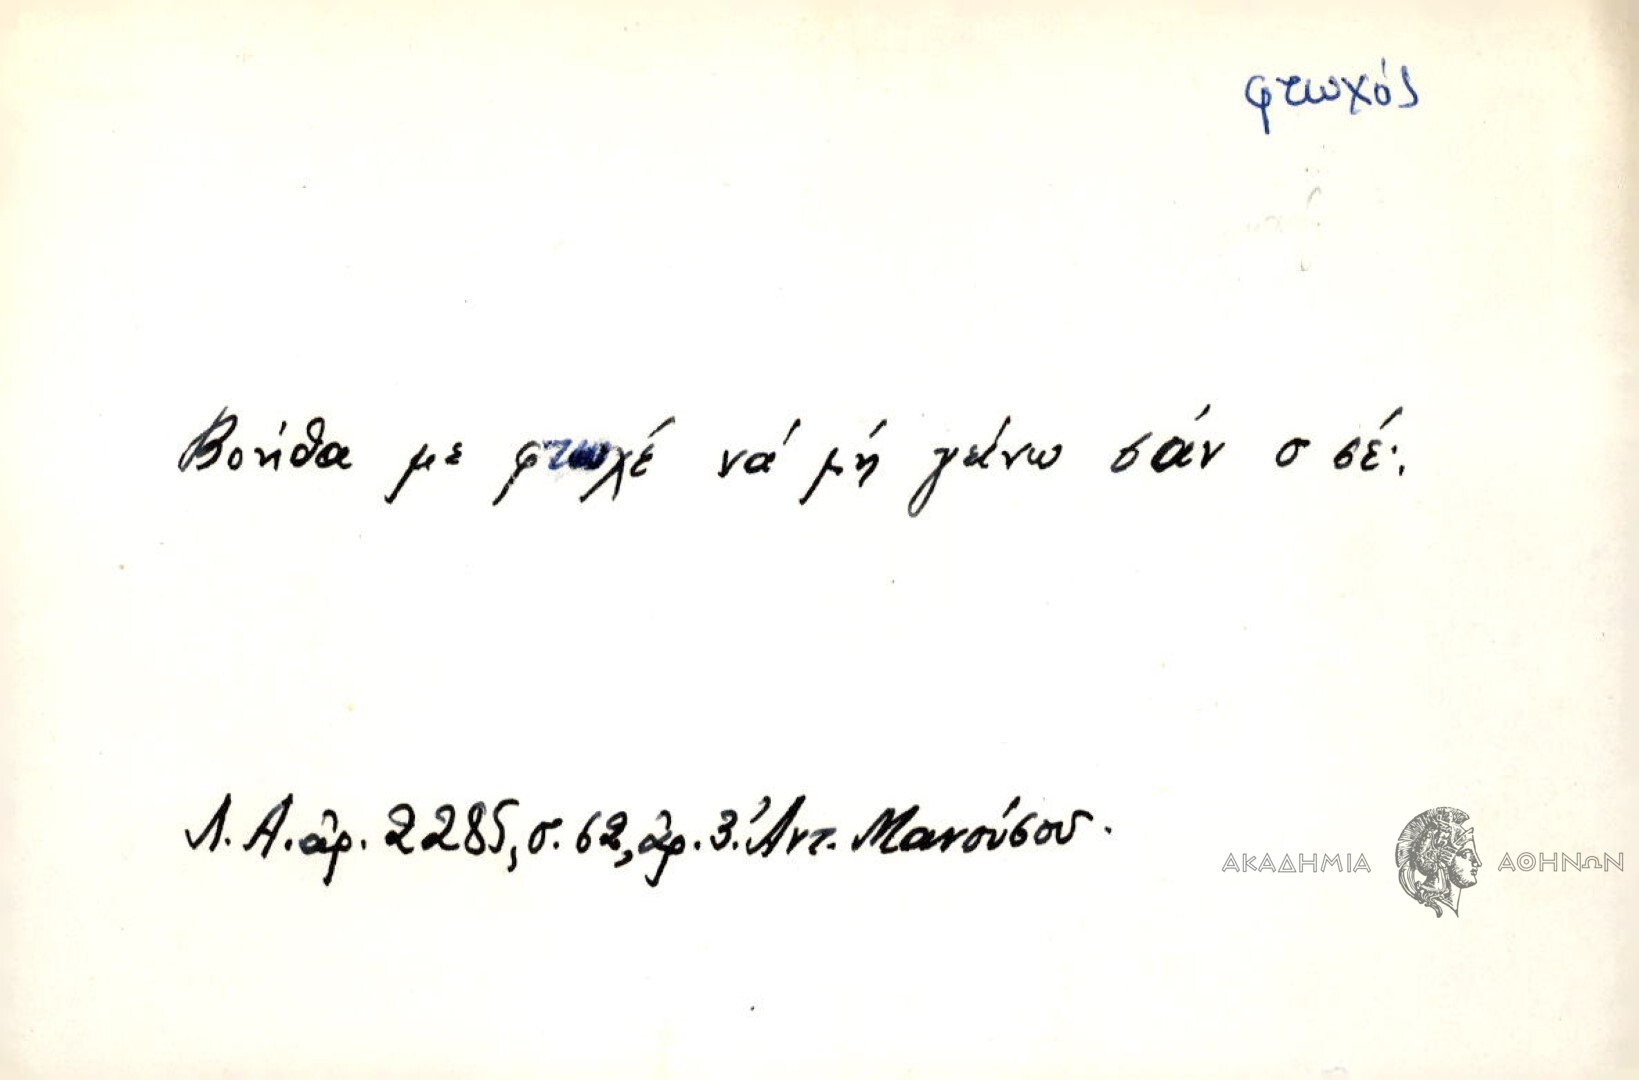 φτωχός
Βοήθα με φτωχέ νά μή γένω σάν σ σέ.
Λ.Α. ἀρ. 2285, σ. 62, ἀρ. 3. Ἀντ. Μανούσου.
ΑΚΑΔΗΜΙΑ ΑΘΗΝΩΝ